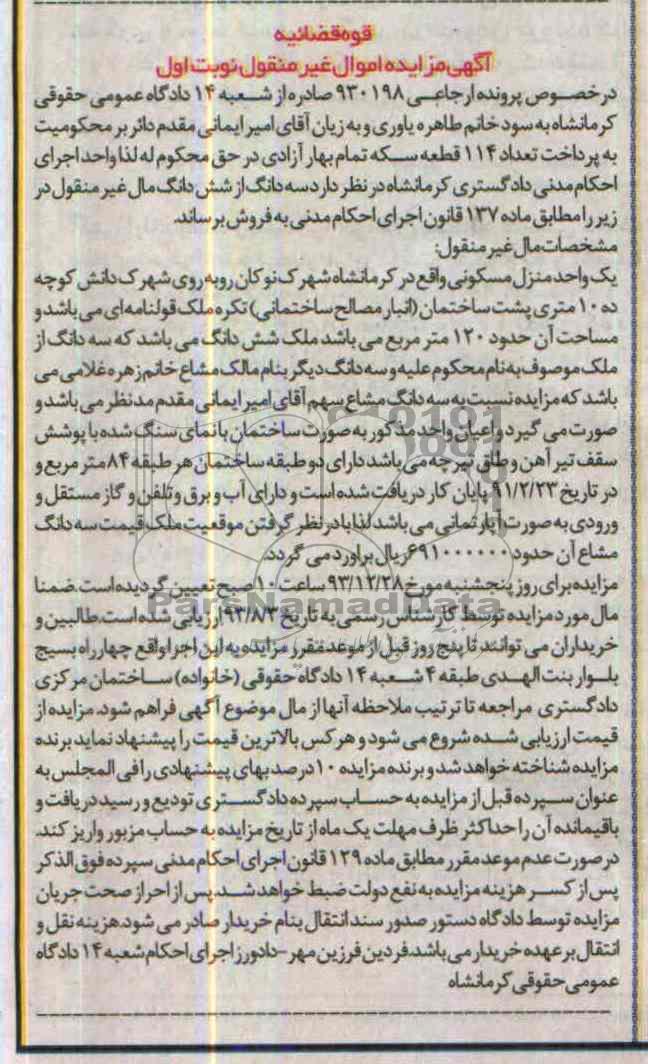 قوه قضائیه
آگهی مزایده اموال غیر منقول نوبت اول
در خصوص پرونده ارجاعی ۹۳۰۱۹۸ صادره از شعبه ۱۴ دادگاه عمومی حقوقی
کرمانشاه به سود خانم طاهره یاوری و به زیان آقای امیر ایمانی مقدم دائر بر محکومیت
به پرداخت تعداد ۱۱۴ قطعه سکه تمام بهار آزادی در حق محکوم له لذا واحد اجرای
احکام مدنی دادگستری کرمانشاه در نظر دارد سه دانگ از شش دانگ مال غیر منقول در
زیر را مطابق ماده ۱۳۷ قانون اجرای احکام مدنی به فروش برساند.
مشخصات مال غیر منقول:
یک واحد منزل مسکونی واقع در کرمانشاه شهرک نوکان روبه روی شهرک دانش کوچه
ده ۱۰ متری پشت ساختمان (انبار مصالح ساختمانی) تکره ملک قولنامه ای می باشد و
مساحت آن حدود ۱۲۰ متر مربع می باشد ملک شش دانگ می باشد که سه دانگ از
ملک موصوف به نام محکوم علیه و سه دانگ دیگر بنام مالک مشاع خانم زهره غلامی می
باشد که مزایده نسبت به سه دانگ مشاع سهم آقای امیر ایمانی مقدم مدنظر می باشد و
صورت می گیرد و اعیان واحد مذکور به صورت ساختمان با نمای سنگ شده با پوشش
سقف تیر آهن و طاق تیرچه می باشد دارای دو طبقه ساختمان هر طبقه ۸۴ متر مربع و
در تاریخ ۹۱/۲/۲۳ پایان کار دریافت شده است و دارای آب و برق و تلفن و گاز مستقل و
ورودی به صورت آپارتمانی می باشد لذا با در نظر گرفتن موقعیت ملک قیمت سه دانگ
مشاع آن حدود ۶۹۱۰۰۰۰۰۰ ریال براورد می گردد.
مزایده برای روز پنجشنبه مورخ ۹۳/۱۲/۲۸ ساعت ۱۰ صبح تعیین گردیده است. ضمنا
مال مورد مزایده توسط کارشناس رسمی به تاریخ ۹۳/۸/۳ ارزیابی شده است. طالبین و
خریداران می توانند تا پنج روز قبل از موعد مقرر مزایده به این اجرا واقع چهارراه بسیج
بلوار بنت الهدی طبقه ۴ شعبه ۱۴ دادگاه حقوقی (خانواده) ساختمان مرکزی
دادگستری مراجعه تا ترتیب ملاحظه آنها از مال موضوع آگهی فراهم شود. مزایده از
قیمت ارزیابی شده شروع می شود و هر کس بالاترین قیمت را پیشنهاد نماید برنده
مزایده شناخته خواهد شد و برنده مزایده ۱۰ درصد بهای پیشنهادی را فی المجلس به
عنوان سپرده قبل از مزایده به حساب سپرده دادگستری تودیع و رسید دریافت و
باقیمانده آن را حداکثر ظرف مهلت یک ماه از تاریخ مزایده به حساب مزبور واریز کند.
در صورت عدم موعد مقرر مطابق ماده ۱۲۹ قانون اجرای احکام مدنی سپرده فوق الذکر
پس از کسر هزینه مزایده به نفع دولت ضبط خواهد شد. پس از احراز صحت جریان
مزایده توسط دادگاه دستور صدور سند انتقال بنام خریدار صادر می شود. هزینه نقل و
انتقال بر عهده خریدار می باشد. فردین فرزین مهر- دادورز اجرای احکام شعبه ۱۴ دادگاه
عمومی حقوقی کرمانشاه
ParsNamadData